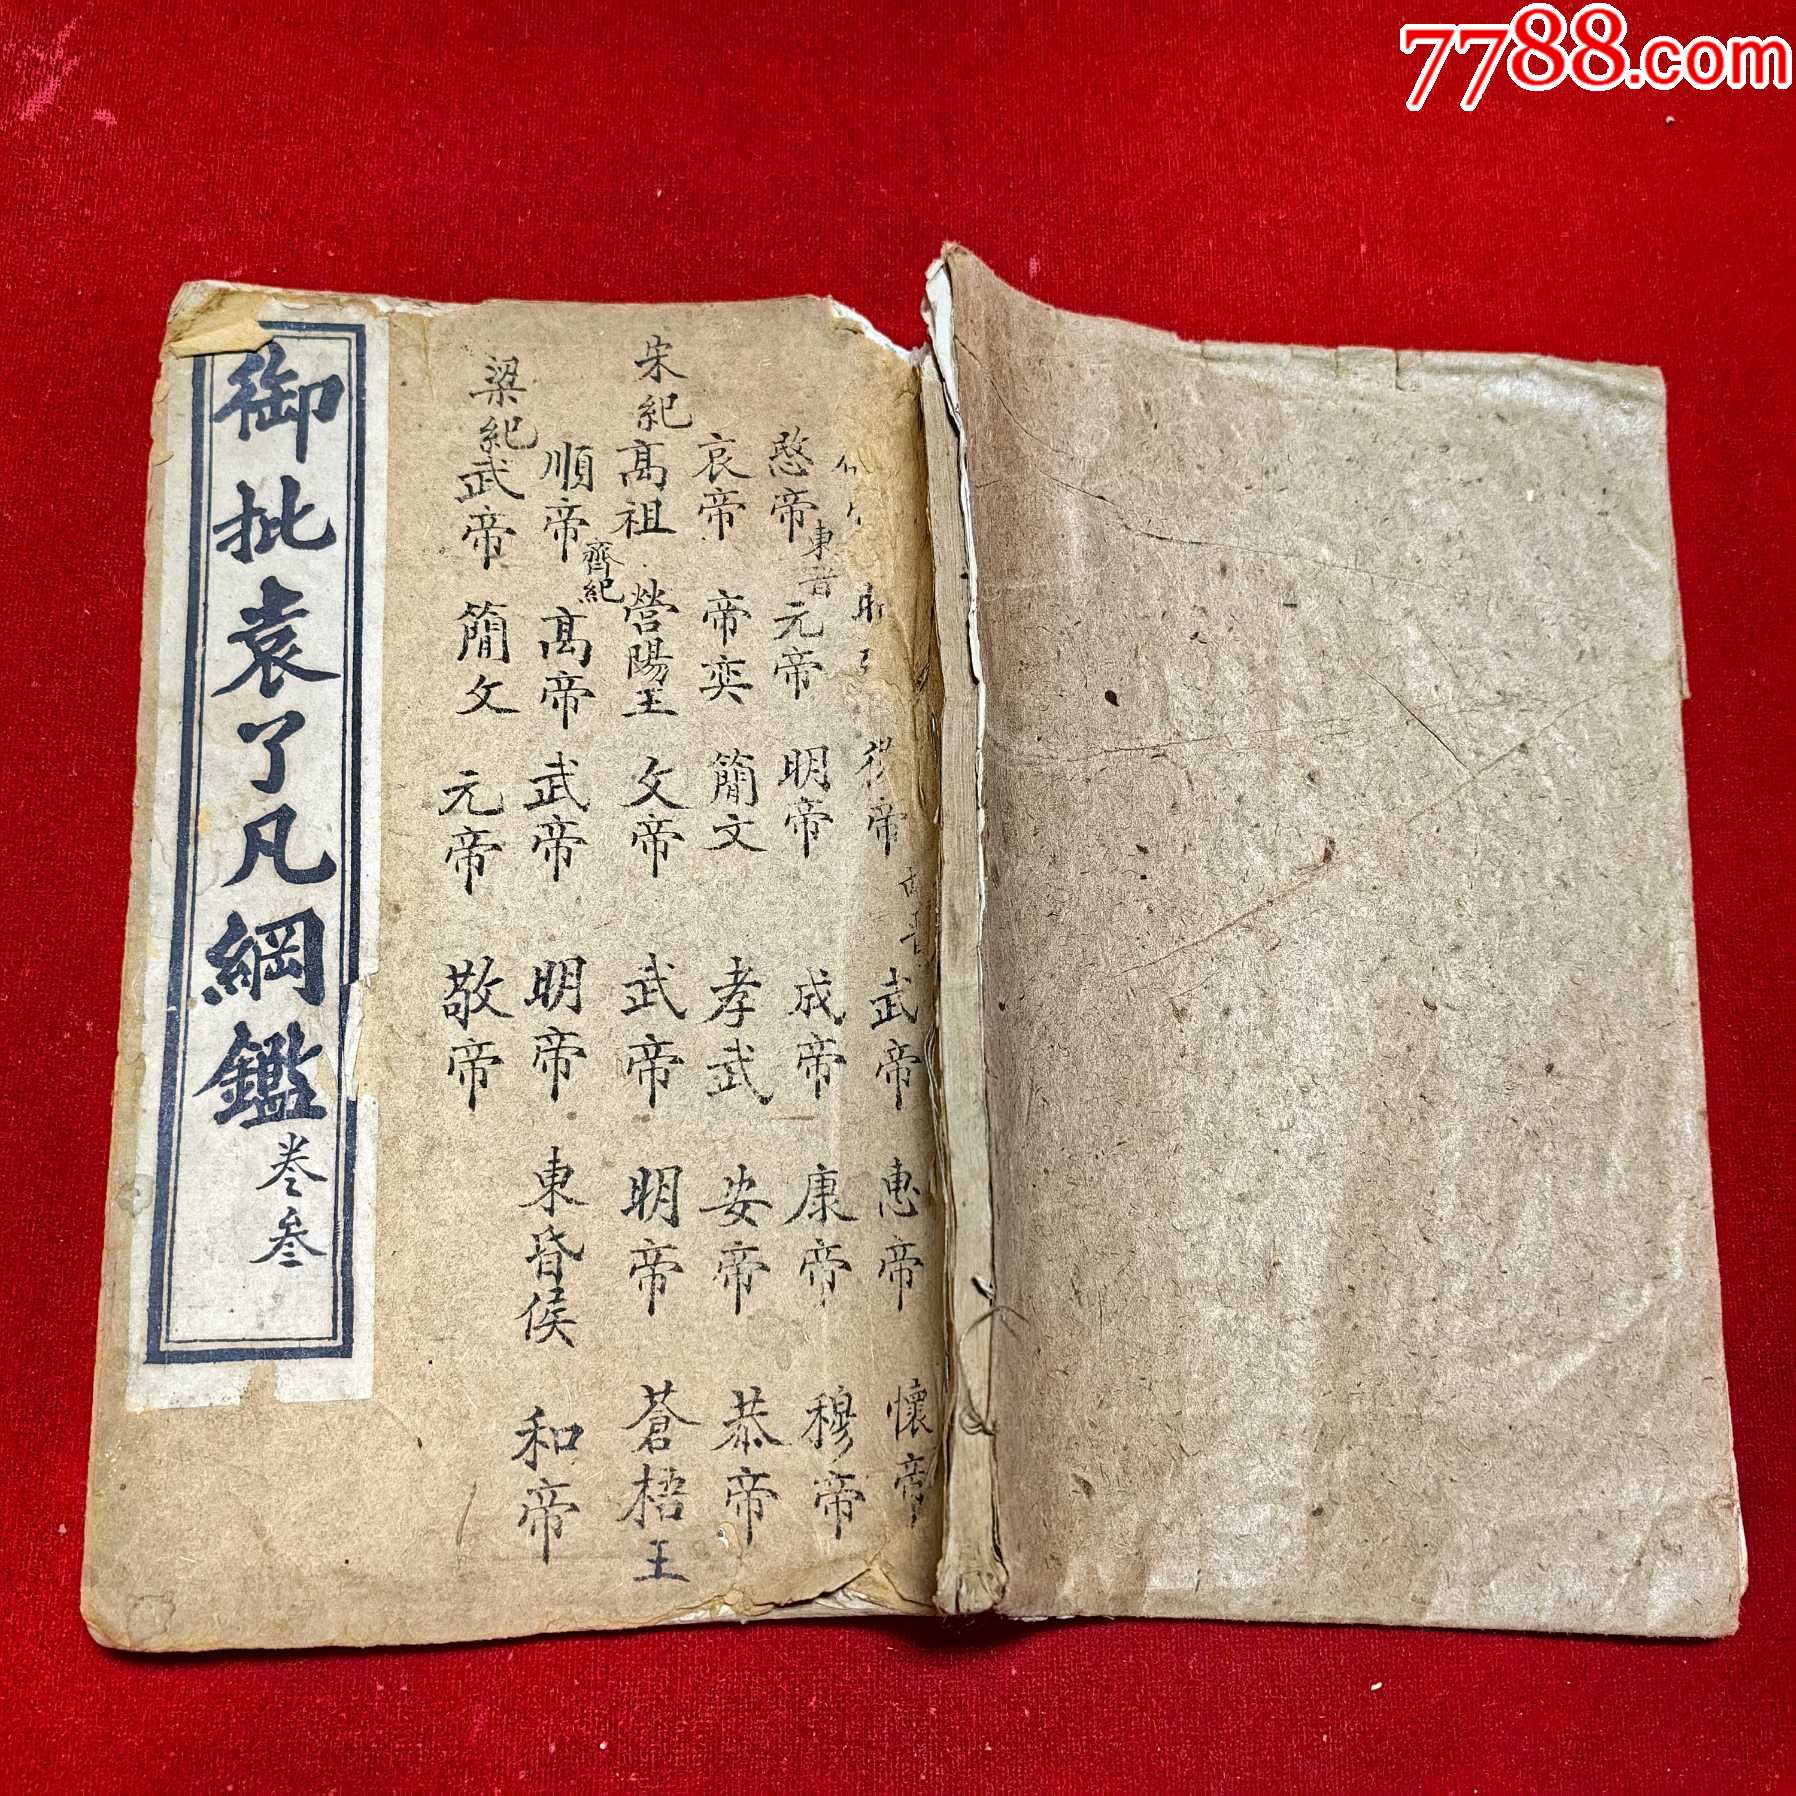 7788.com
御批袁了凡綱鑑 卷叁
帝
武帝 惠帝 懷帝
愍帝 東晋 元帝 明帝 成帝 康帝 穆帝
哀帝 帝奕 簡文 孝武 安帝 恭帝
宋紀 高祖 營陽王 文帝 武帝 明帝 蒼梧王
順帝 齊紀 高帝 武帝 明帝 東昏侯 和帝
梁紀 武帝 簡文 元帝 敬帝